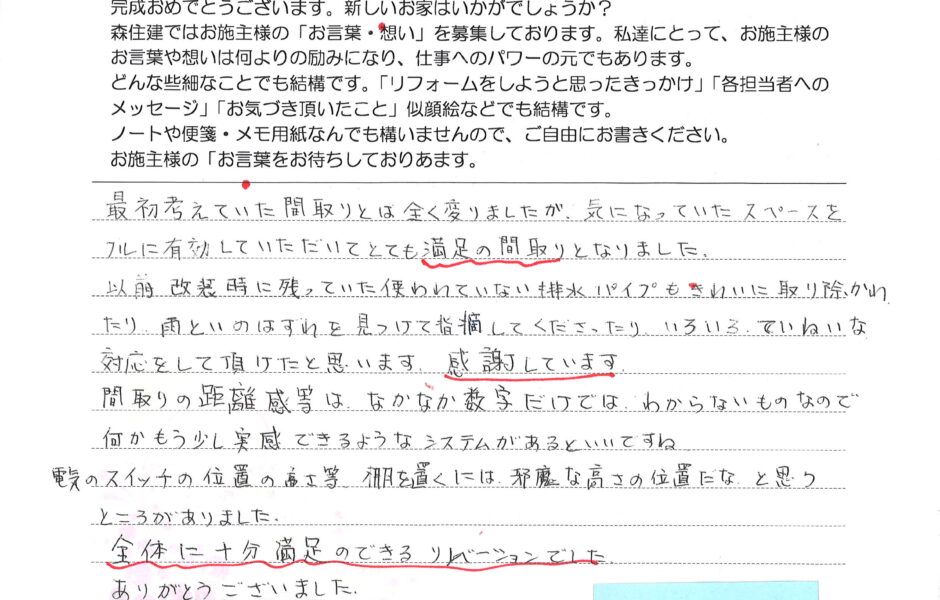 完成おめでとうございます。新しいお家はいかがでしょうか?
森住建ではお施主様の「お言葉・想い」を募集しております。私達にとって、お施主様の
お言葉や想いは何よりの励みになり、仕事へのパワーの元でもあります。
どんな些細なことでも結構です。「リフォームをしようと思ったきっかけ」「各担当者への
メッセージ」「お気づき頂いたこと」似顔絵などでも結構です。
ノートや便箋・メモ用紙なんでも構いませんので、ご自由にお書きください。
お施主様の「お言葉をお待ちしておりあます。
最初考えていた間取りとは全く変りましたが、気になっていたスペースを
フルに有効していただいてとても満足の間取りとなりました。
以前改装時に残っていた使われていない排水パイプもきれいに取り除かれ
たり、雨といのはずれを見つけて指摘してくださったり、いろいろ、ていねいな
対応をして頂けたと思います。感謝しています。
間取りの距離感等は、なかなか数字だけでは、わからないものなので
何かもう少し実感できるようなシステムがあるといいですね
電気のスイッチの位置の高さ等、棚を置くには、邪魔な高さの位置だな、と思う
ところがありました。
全体に十分満足のできるリノベーションでした。
ありがとうございました。